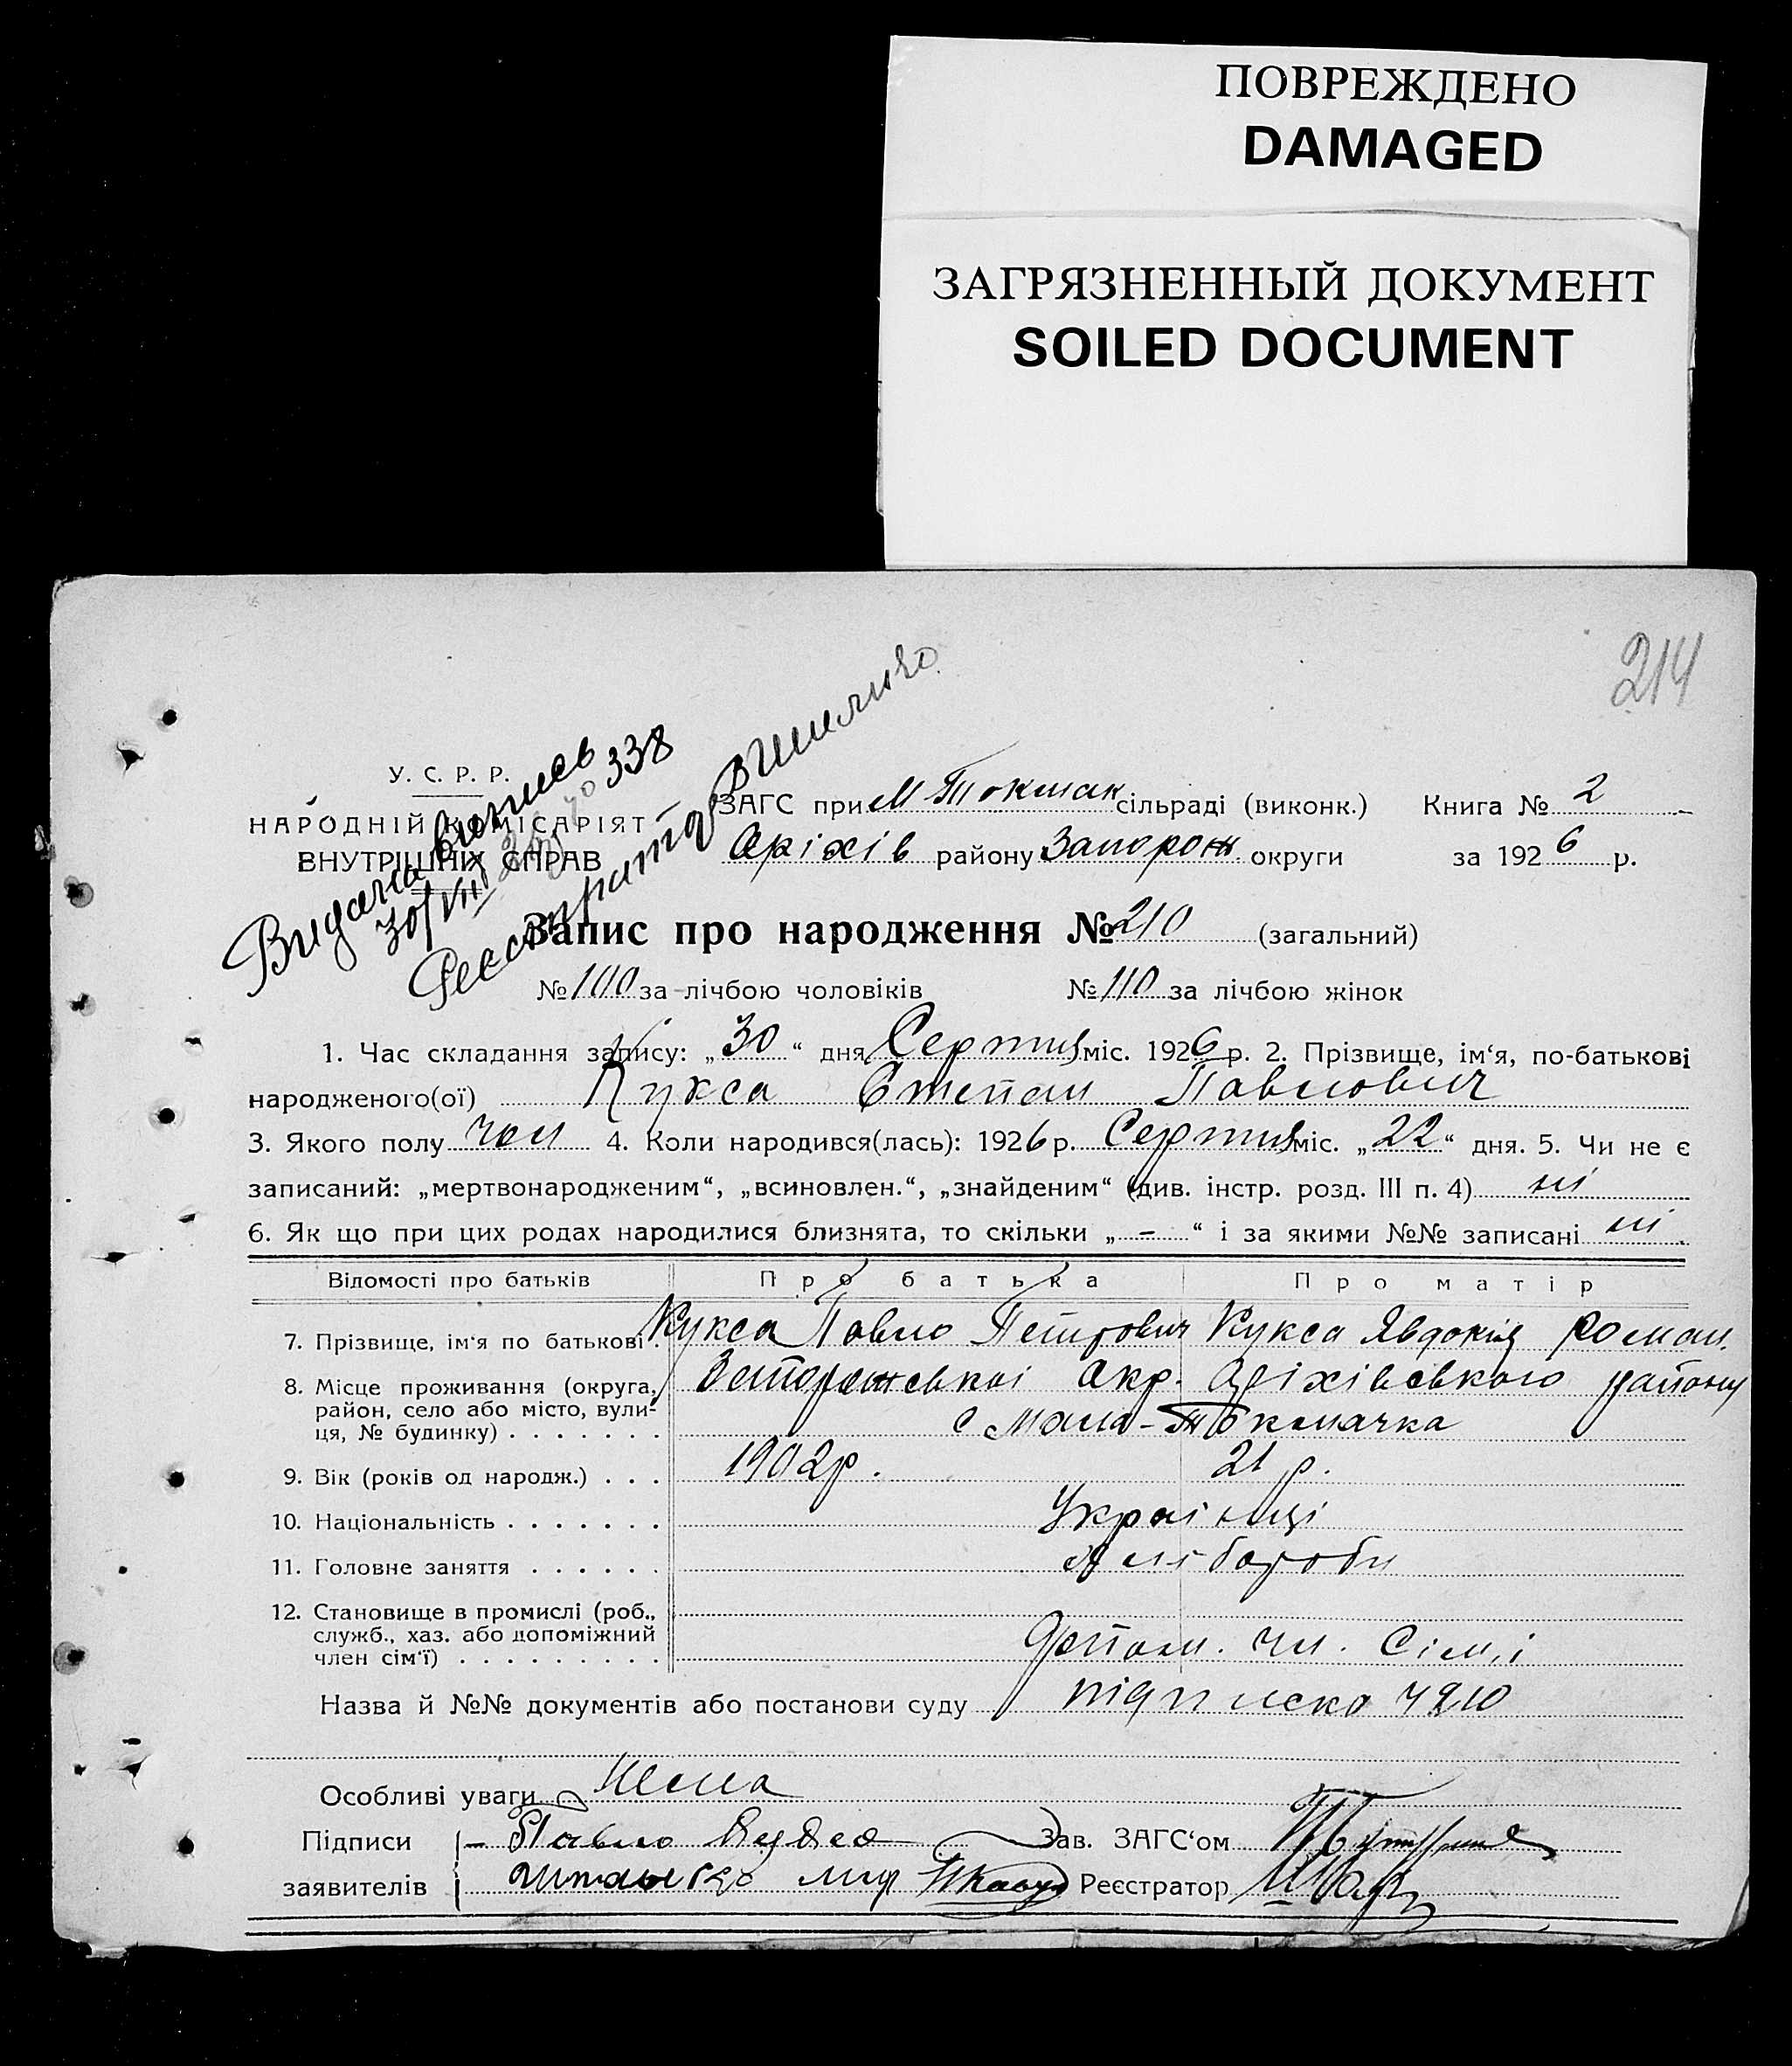 ПОВРЕЖДЕНО
DAMAGED
ЗАГРЯЗНЕННЫЙ ДОКУМЕНТ
SOILED DOCUMENT
214
Видана виписъ
30/VIII 338
Реєстратор
У. С. Р. Р.
НАРОДНІЙ КОМІСАРІЯТ
ВНУТРІШНІХ СПРАВ
ЗАГС при М Токмак сільраді (виконк.) Книга № 2
Оріхів району Запорож округи за 1926 р.
Запис про народження № 210 (загальний)
№ 100 за лічбою чоловіків № 110 за лічбою жінок
1. Час складання запису: „30“ дня Сертня міс. 1926 р. 2. Прізвище, ім‘я, по-батькові
народженого(ої) Кукса Степан Павлович
3. Якого полу чол 4. Коли народився(лась): 1926 р. Сертня міс. „22“ дня. 5. Чи не є
записаний: „мертвонародженим“, „всиновлен.“, „знайденим“ (див. інстр. розд. III п. 4) ні
6. Як що при цих родах народилися близнята, то скільки „ – “ і за якими №№ записані ні.
Відомості про батьків Про батька Про матір
7. Прізвище, ім‘я по батькові . Кукса Павло Петрович Кукса Явдокія Роман.
8. Місце проживання (округа, район, село або місто, вулиця, № будинку) . . . . . . . Запорожської Окр. Оріхівського району
с Мала-Токмачка
9. Вік (років од народж.) . . . 1902р. 21 р.
10. Національність . . . . . . . Українці
11. Головне заняття . . . . . . Хлібороби
12. Становище в промислі (роб.,
служб., хаз. або допоміжний
член сім‘ї) . . . . . . . . . Допом. чл. Сім,ї
Назва й №№ документів або постанови суду підписка 4210
Особливі уваги Нема
Підписи – Павло Кукса Зав. ЗАГС‘ом
заявителів Реєстратор